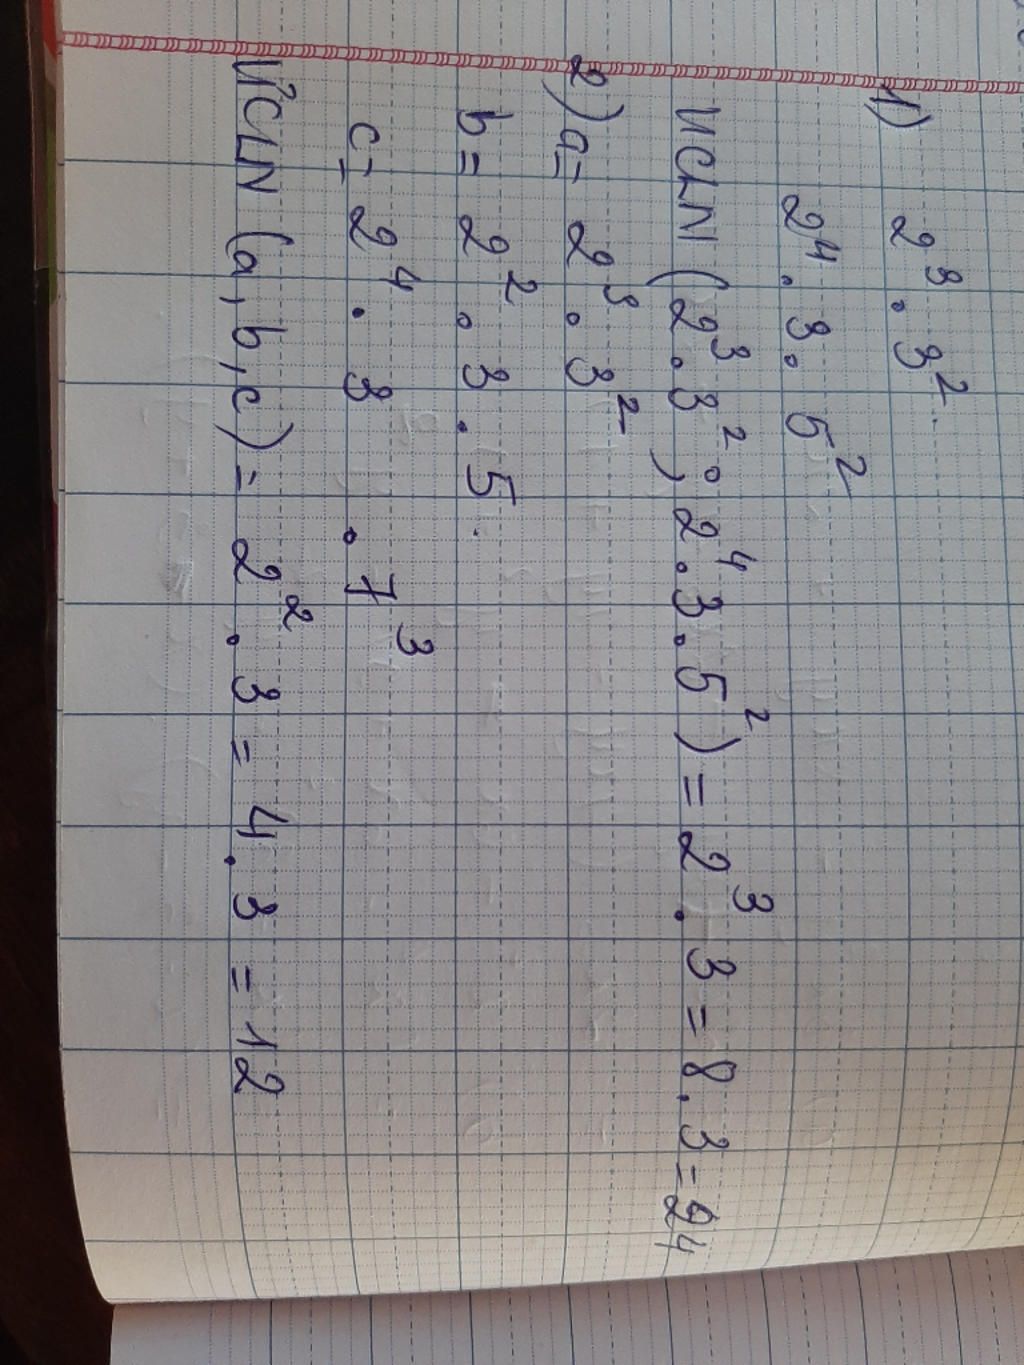 1) 2³ . 3²
2⁴ . 3 . 5²
ƯCLN (2³ . 3² ; 2⁴ . 3 . 5²) = 2³ . 3 = 8 . 3 = 24
2) a = 2³ . 3²
b = 2² . 3 . 5
c = 2⁴ . 3 . 7³
ƯCLN (a, b, c) = 2² . 3 = 4 . 3 = 12